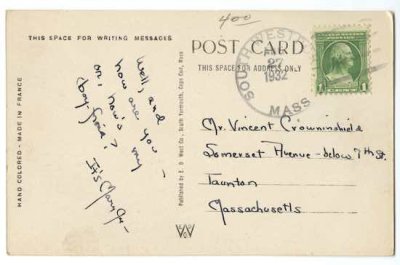 400
THIS SPACE FOR WRITING MESSAGES
POST CARD
THIS SPACE FOR ADDRESS ONLY
SOUTH
27
1932
MASS
1 CENTS 1
Well, and
how are you —
or, how's my
boy-friend?
It's
Mr. Vincent Crowninshield
Somerset Avenue - below 7th St.
Taunton
Massachusetts
HAND COLORED - MADE IN FRANCE
Published by E. D. West Co., South Yarmouth, Cape Cod, Mass